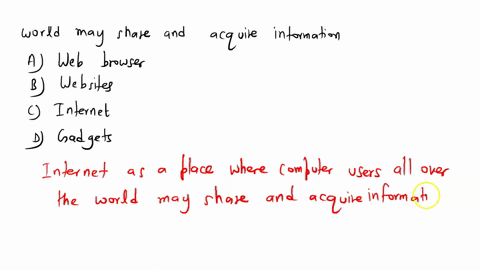 world may share and acquire information
A) Web browser
B) Websites
C) Internet
D) Gadgets
Internet as a place where computer users all over
the world may share and acquire informati